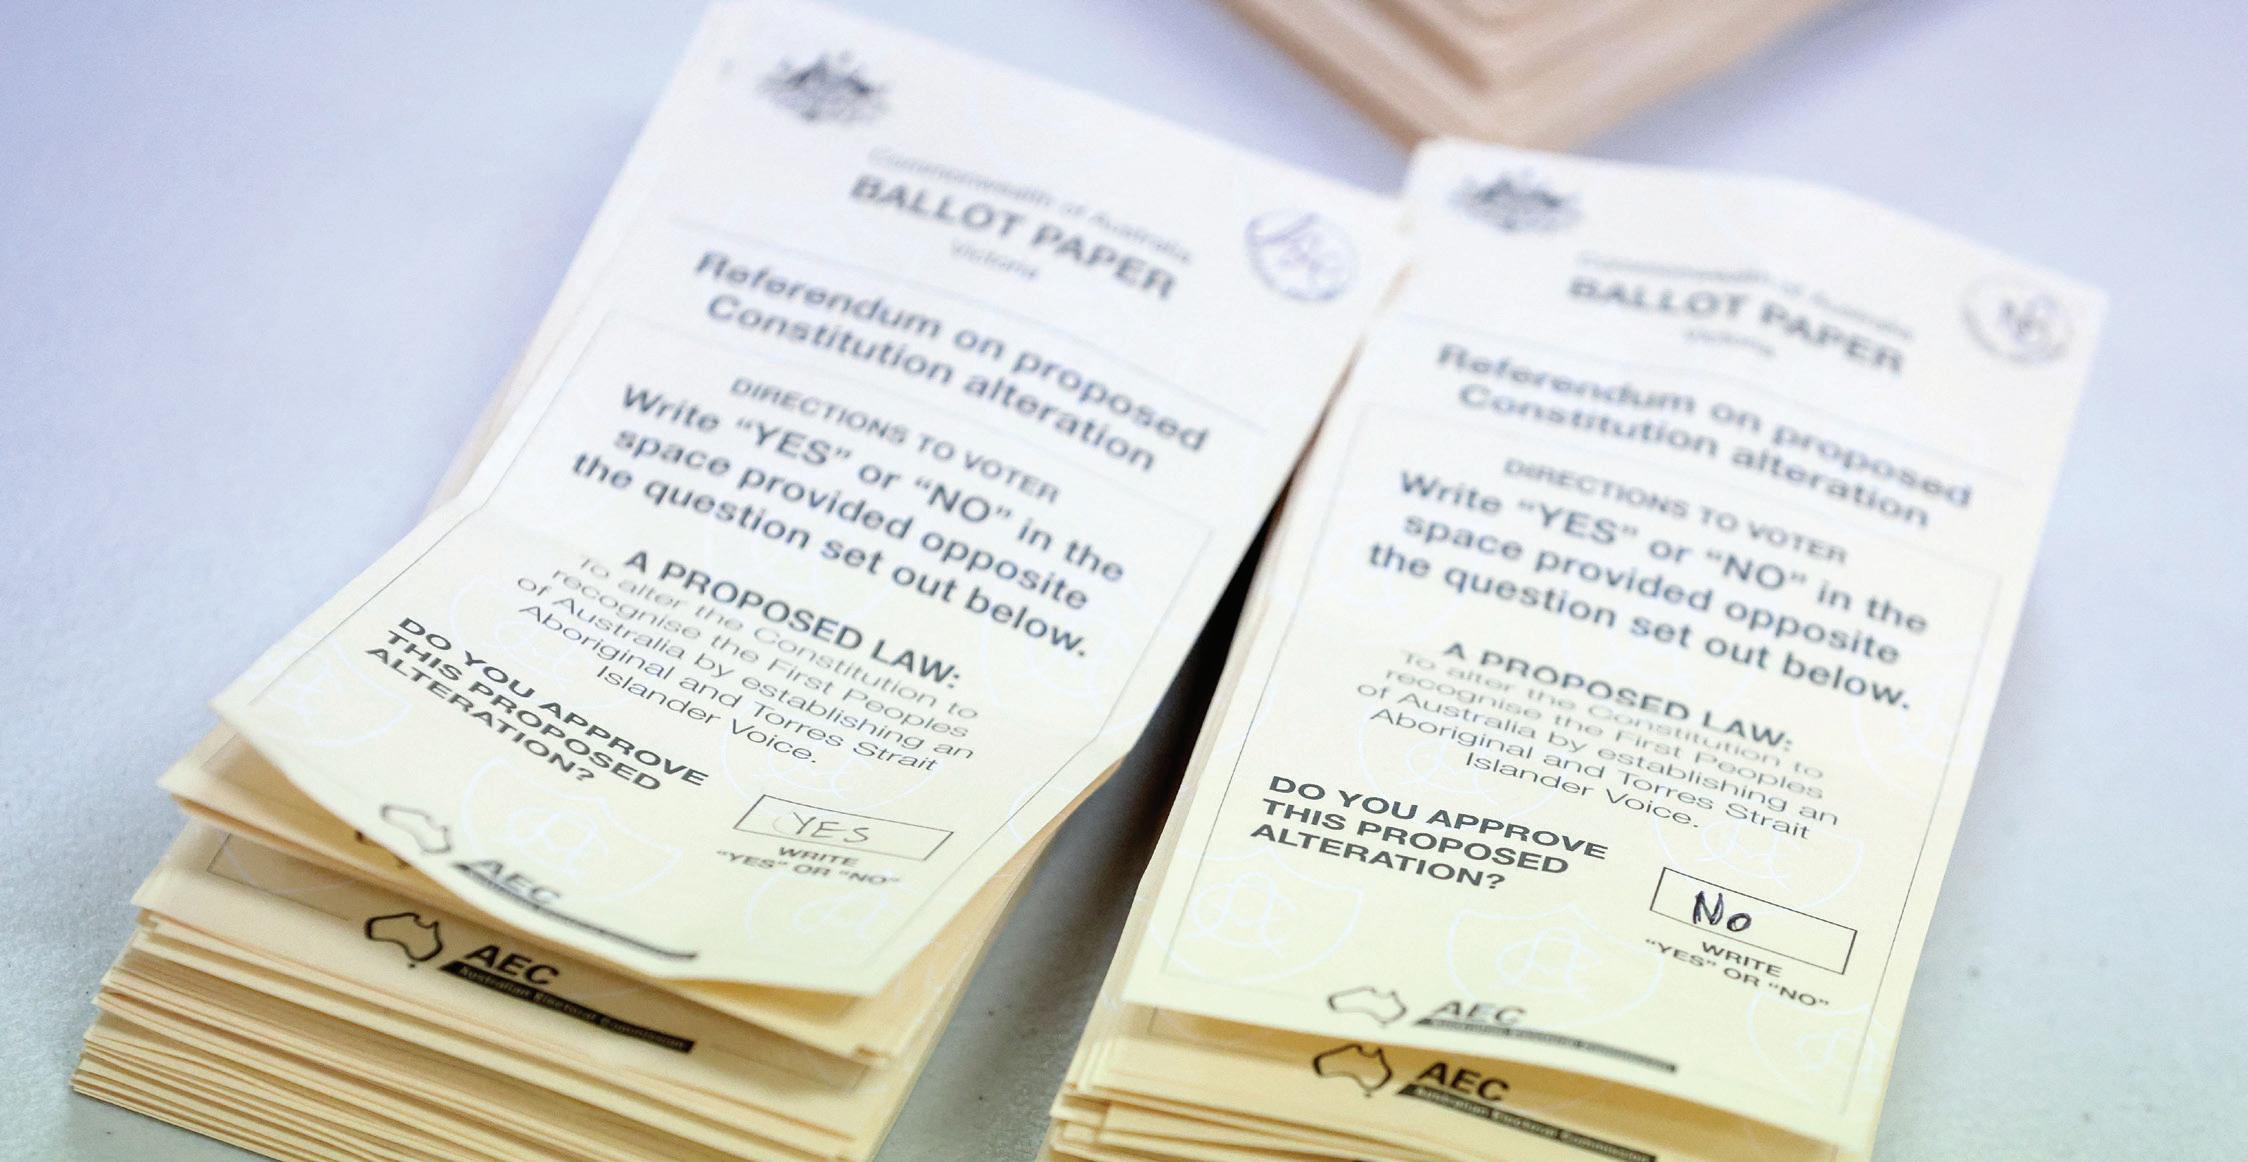 Commonwealth of Australia
BALLOT PAPER
Victoria
Referendum on proposed
Constitution alteration
DIRECTIONS TO VOTER
Write “YES” or “NO” in the
space provided opposite
the question set out below.
A PROPOSED LAW:
To alter the Constitution to
recognise the First Peoples
of Australia by establishing an
Aboriginal and Torres Strait
Islander Voice.
DO YOU APPROVE
THIS PROPOSED
ALTERATION?
YES
WRITE
“YES” OR “NO”
AEC
AEC
Australian Electoral Commission
Commonwealth of Australia
BALLOT PAPER
Victoria
Referendum on proposed
Constitution alteration
DIRECTIONS TO VOTER
Write “YES” or “NO” in the
space provided opposite
the question set out below.
A PROPOSED LAW:
To alter the Constitution to
recognise the First Peoples
of Australia by establishing an
Aboriginal and Torres Strait
Islander Voice.
DO YOU APPROVE
THIS PROPOSED
ALTERATION?
No
WRITE
“YES” OR “NO”
AEC
Australian Electoral Commission
AEC
Australian Electoral Commission